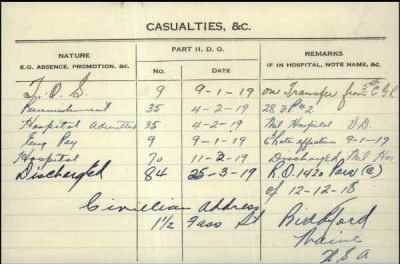 CASUALTIES, &C.
NATURE
E.G. ABSENCE, PROMOTION, &C.
PART II. D. O.
No. DATE
REMARKS
IF IN HOSPITAL, NOTE NAME, &C.
T. O. S. 9 9-1-19 on Transfer from
Punishment 35 4-2-19 28
Hospital admitted 35 4-2-19 Mil Hospital V.D.
Eng Pay 9 9-1-19 rate effective 9-1-19
Hospital 70 11-2-19 Discharged Mil Hos
Discharged 84 25-3-19 R.O. 1420 Para (c)
of 12-12-18
Civilian address
1½ Foss St Biddeford
Maine
U S A